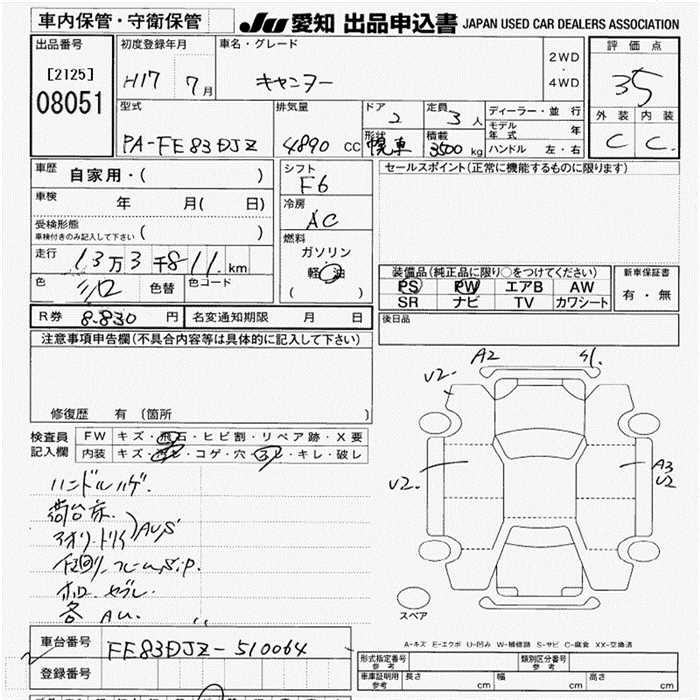 車内保管・守衛保管
JU 愛知 出品申込書 JAPAN USED CAR DEALERS ASSOCIATION
出品番号
[2125]
08051
初度登録年月
H17 7月
車名・グレード
キャンター
2WD
・
4WD
評価点
35
外装 内装
C C
型式
PA-FE83DJZ
排気量
4890 CC
ドア
2
定員
3人
形状
幌車
積載
3500 kg
ディーラー・並行
モデル年式 年
ハンドル 左・右
車歴
自家用・( )
車検
年 月( 日)
受検形態
車検付きのみ記入して下さい ( )
走行
13万3千811km
色
シロ
色替
色コード
シフト
F6
冷房
AC
燃料
ガソリン
軽油
( )
セールスポイント(正常に機能するものに限ります)
装備品(純正品に限り○をつけてください)
PS PW エアB AW
SR ナビ TV カワシート
新車保証書
有・無
R券 8.830 円
名変通知期限 月 日
後日品
注意事項申告欄(不具合内容等は具体的に記入して下さい)
修復歴 有 〔箇所 〕
検査員
記入欄
FW キズ・飛石・ヒビ割・リペア跡・X要
内装 キズ・汚レ・コゲ・穴・スレ・キレ・破レ
ハンドルハゲ.
荷台床.
アオリ.トリイ
AU,S
下回り.フレームS.P.
ホロ ヤブレ.
各 AU.
A2
S1.
V2.
V2.
A3
V2
スペア
A-キズ E-エクボ U-凹み W-補修跡 S-サビ C-腐食 XX-交換済
車台番号
FE83DJZ-510064
登録番号
形式指定番号
参考
類別区分番号
参考
車庫証明用
参考
長さ cm 幅 cm 高さ cm